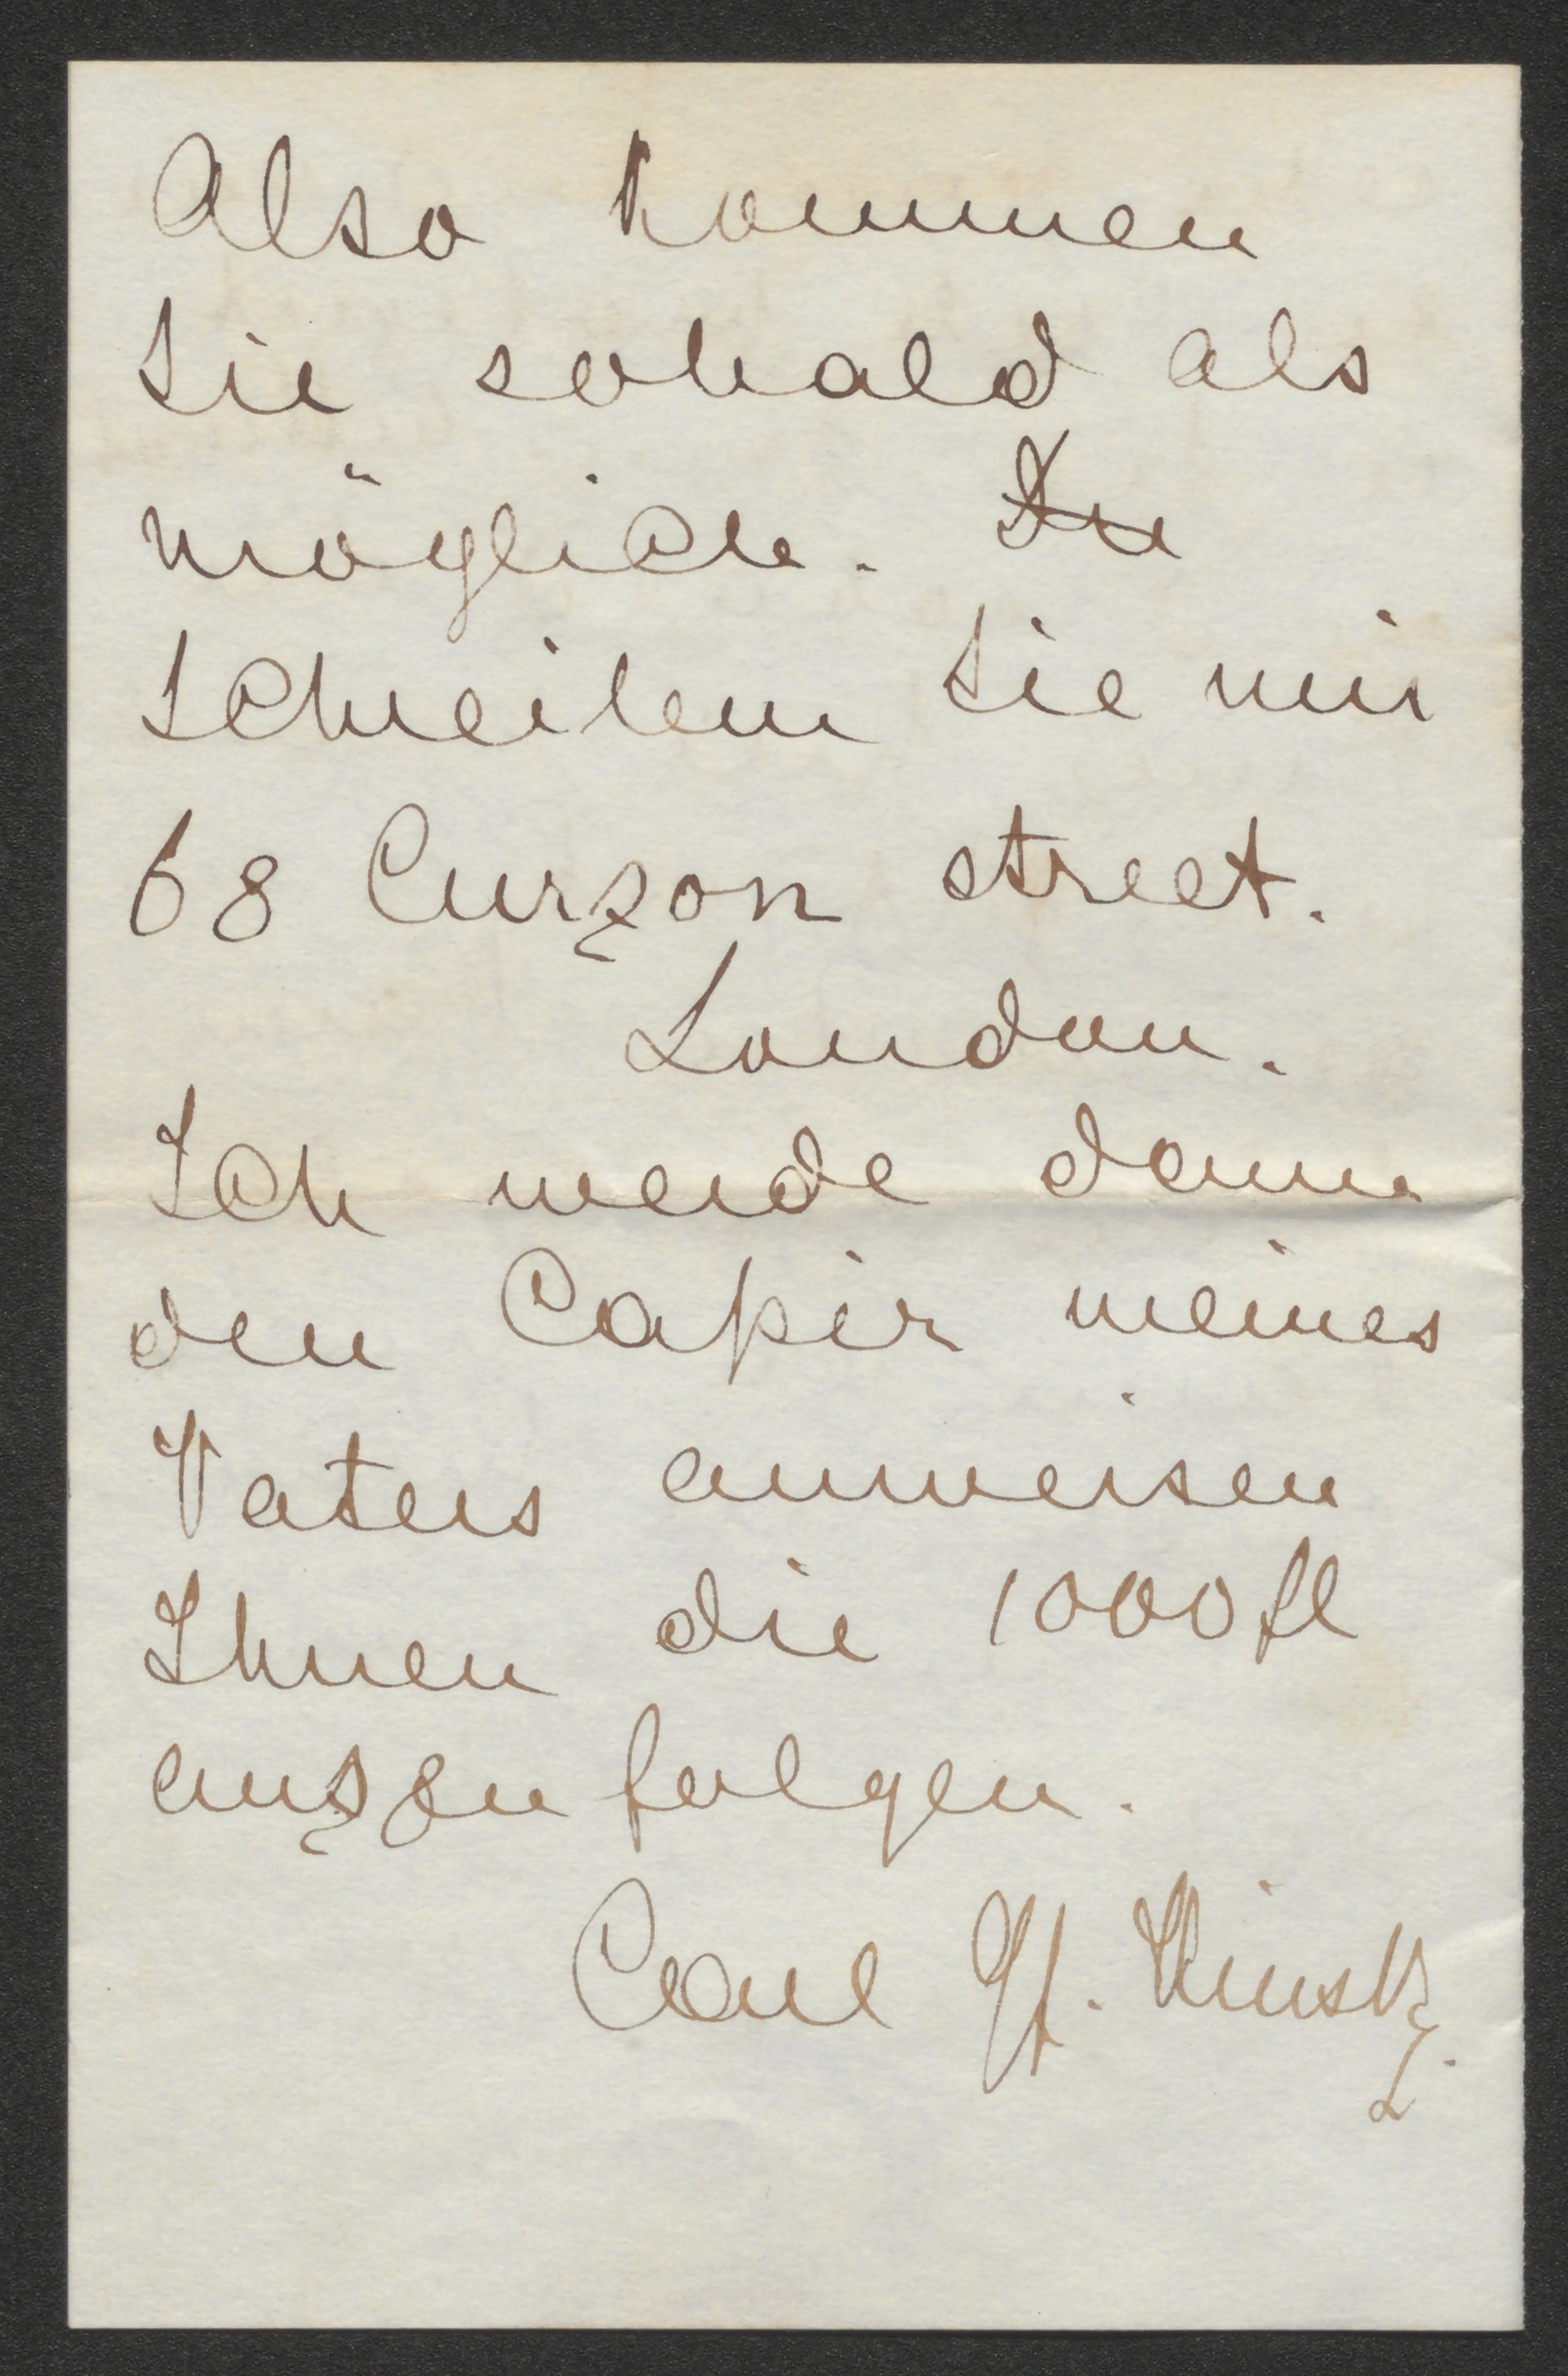 Also kommen
Sie sobald als
möglich. Die
Schreiben Sie mir
68 Curzon street.
London.
Ich werde dann
den Casir meines
Vaters anweisen
Ihnen die 1000 fl
auszufolgen.
Carl Gf. Kinsky.